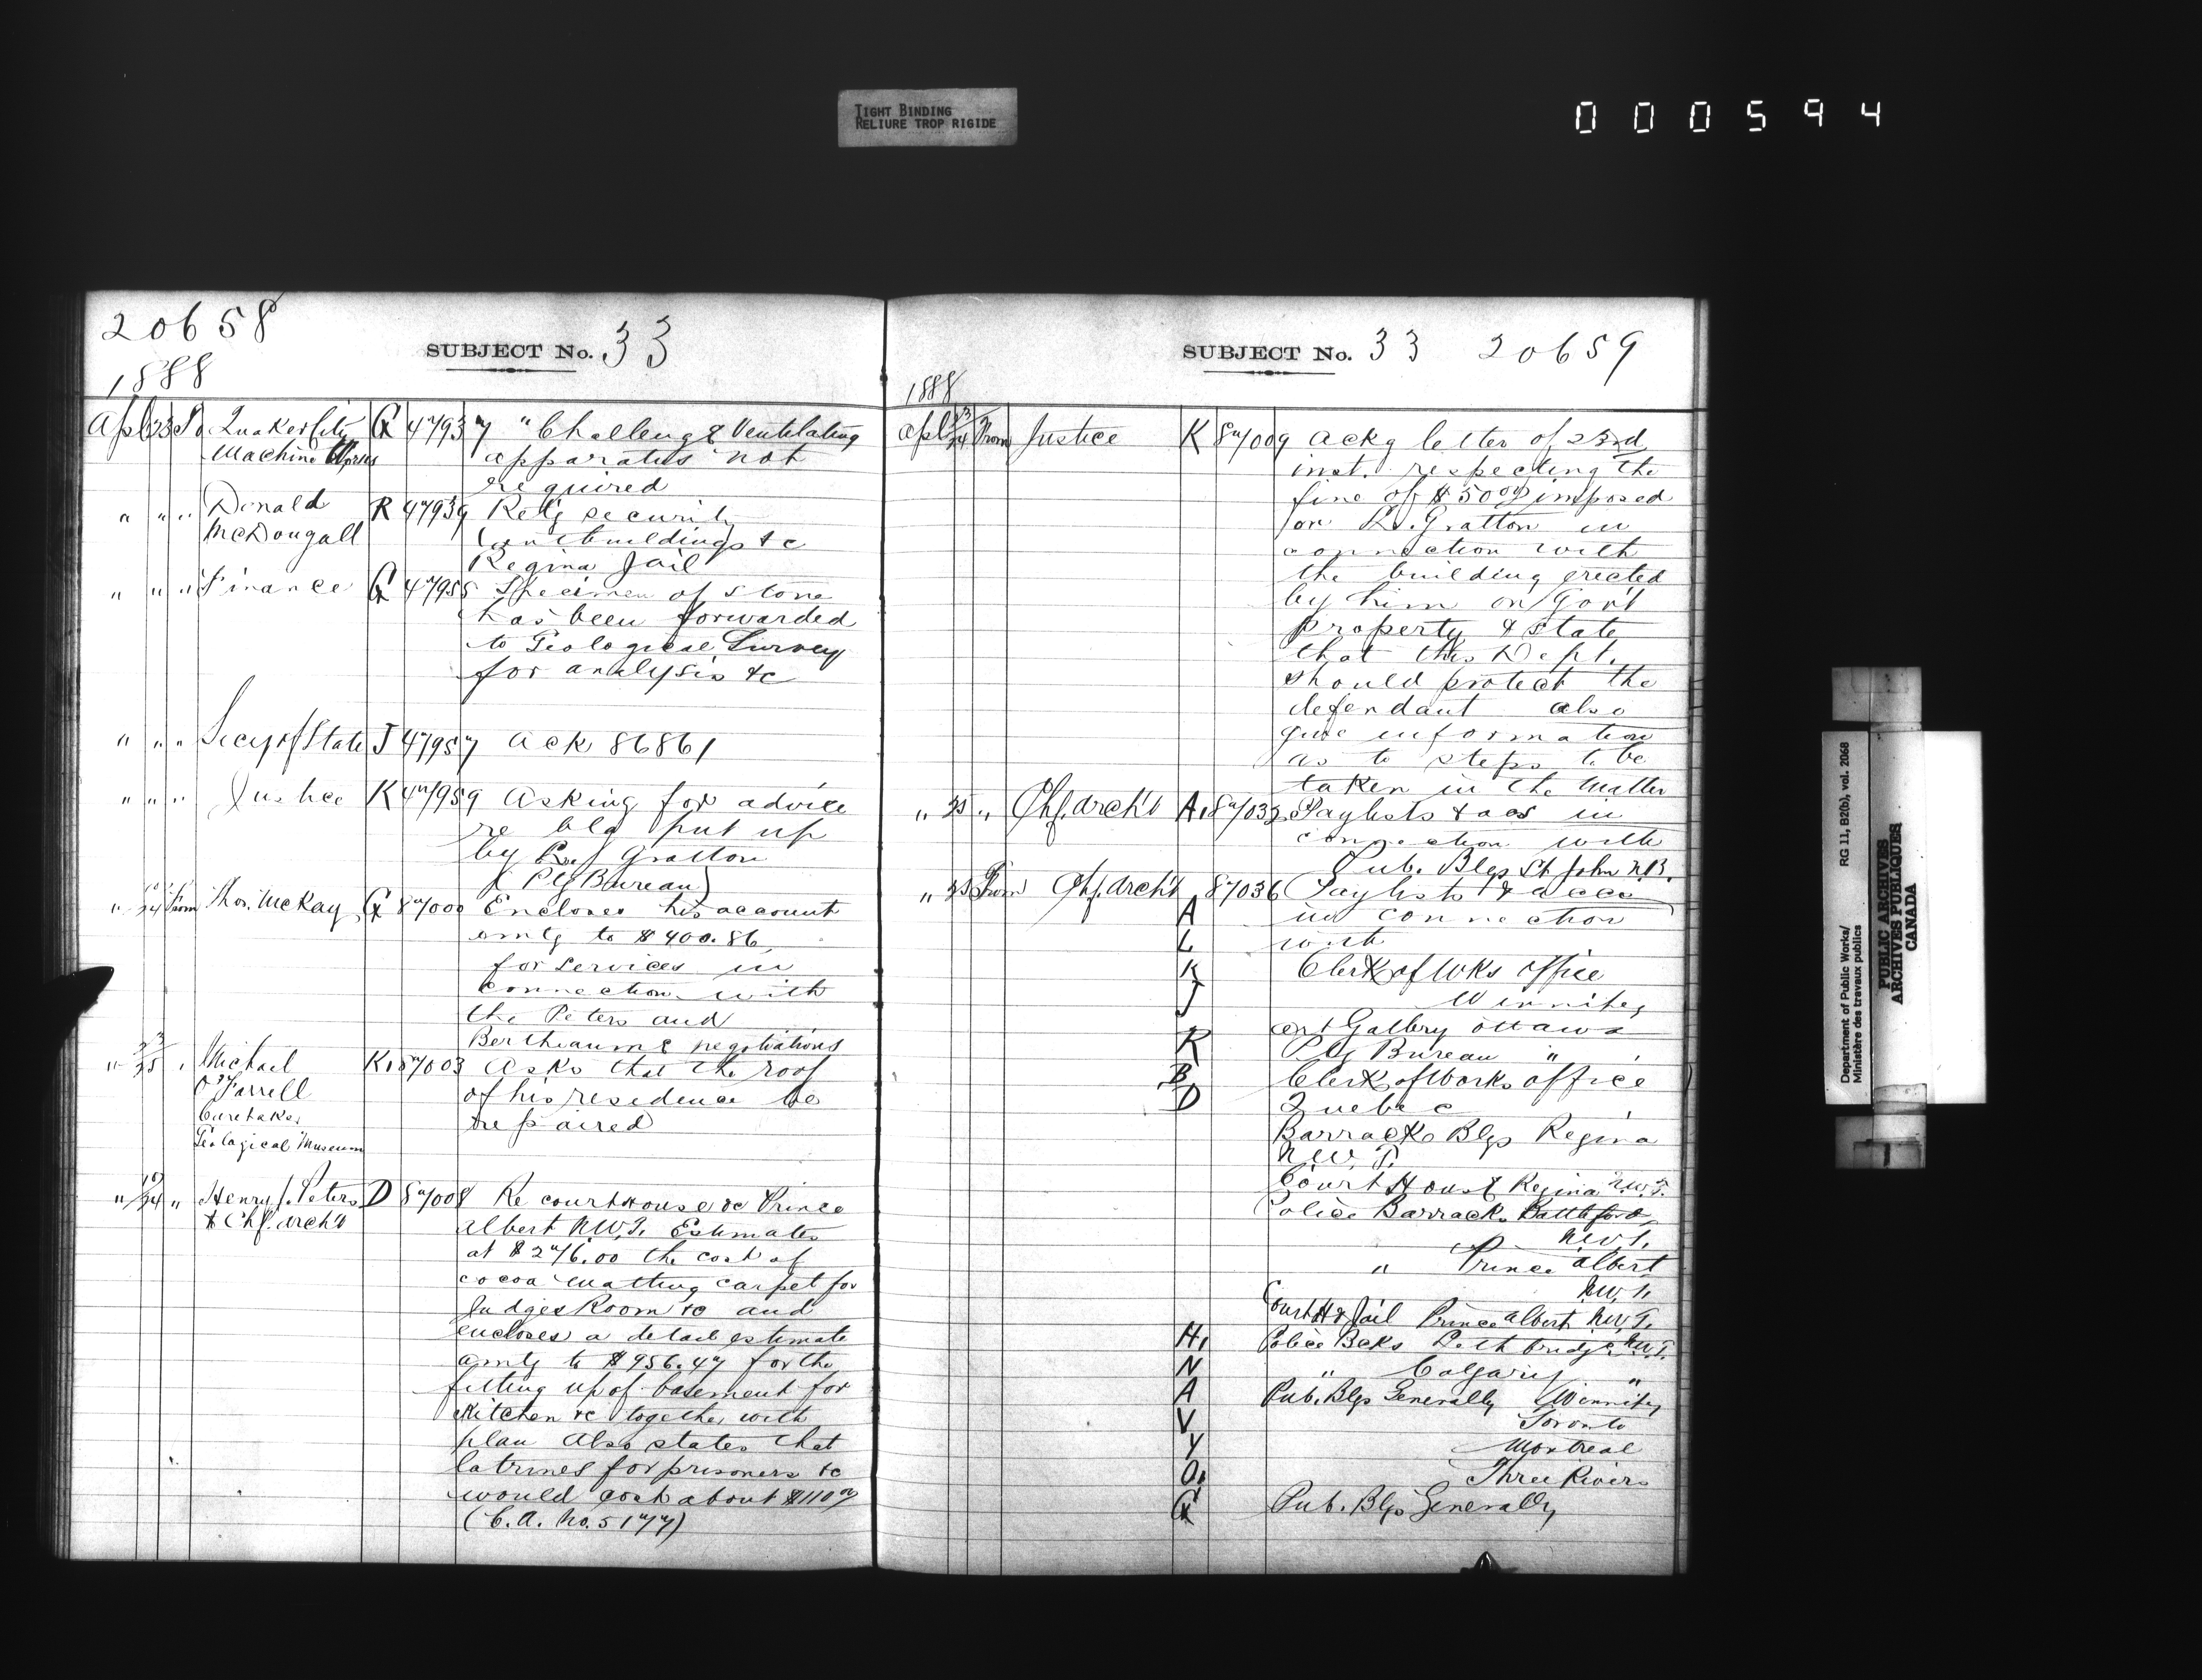 TIGHT BINDING
RELIURE TROP RIGIDE
000594
20658
SUBJECT No. 33
1888
Apl 23 To Quaker City G 47937 "Challenge Ventilating
Machine Works apparatus not
required
" " " Donald R 47939 Retg security
McDougall outbuildings &c
Regina Jail
" " " Finance G 47955 Specimen of stone
has been forwarded
to Geological Survey
for analysis &c
" " " Secy of State J 47957 Ack 86861
" " " Justice K 47959 Asking for advice
re blg put up
by R. Gratton
(Ptg Bureau)
" 10/24 From Thos. McKay G 87000 Encloses his account
amtg to $400.86
for services in
connection with
the Peters and
Bertheaume negotiations
" 23/25 " Michael K. 87003 Asks that the roof
O'Farrell of his residence be
Caretaker repaired
Geological Museum
" 10/24 " Henry J. Peters D 87008 Re courthouse &c Prince
& Chf. Arch't Albert N.W.T. Estimates
at $276.00 the cost of
cocoa matting carpet for
Judges Room &c and
encloses a detail estimate
amtg to $956.47 for the
fitting up of basement for
Kitchen &c together with
plan Also states that
latrines for prisoners &c
would cost about $110
(C.A. No. 5177)
SUBJECT No. 33 20659
1888
Apl 23/24 From Justice K 87009 Ackg letter of 23rd
inst. respecting the
fine of $50 imposed
on R. Gratton in
connection with
the building erected
by him on Gov't
property & state
that this Dept.
should protect the
defendant also
give information
as to steps to be
taken in the matter
" 25 " Chf. Arch't A. 87032 Paylists & acs in
connection with
Pub. Blgs St John N.B.
" 25 From Chf. Arch't 87036 Paylists & accs
A in connection
L with
K Clerk of Wks office
J Winnipeg
Art Gallery Ottawa
R Ptg Bureau "
B Clerk of Works office
D Quebec
Barracks Blgs Regina
N.W.T.
Court House Regina N.W.T.
Police Barracks Battleford
N.W.T.
" Prince Albert
N.W.T.
Court H & Jail Prince Albert N.W.T.
H. Police Bcks Lethbridge N.W.T.
N " Calgary "
A Pub. Blgs Generally Winnipeg
V Toronto
Y Montreal
O. Three Rivers
G Pub. Blgs Generally
Department of Public Works/ RG 11, B2(b), vol. 2068
Ministère des travaux publics
PUBLIC ARCHIVES
ARCHIVES PUBLIQUES
CANADA